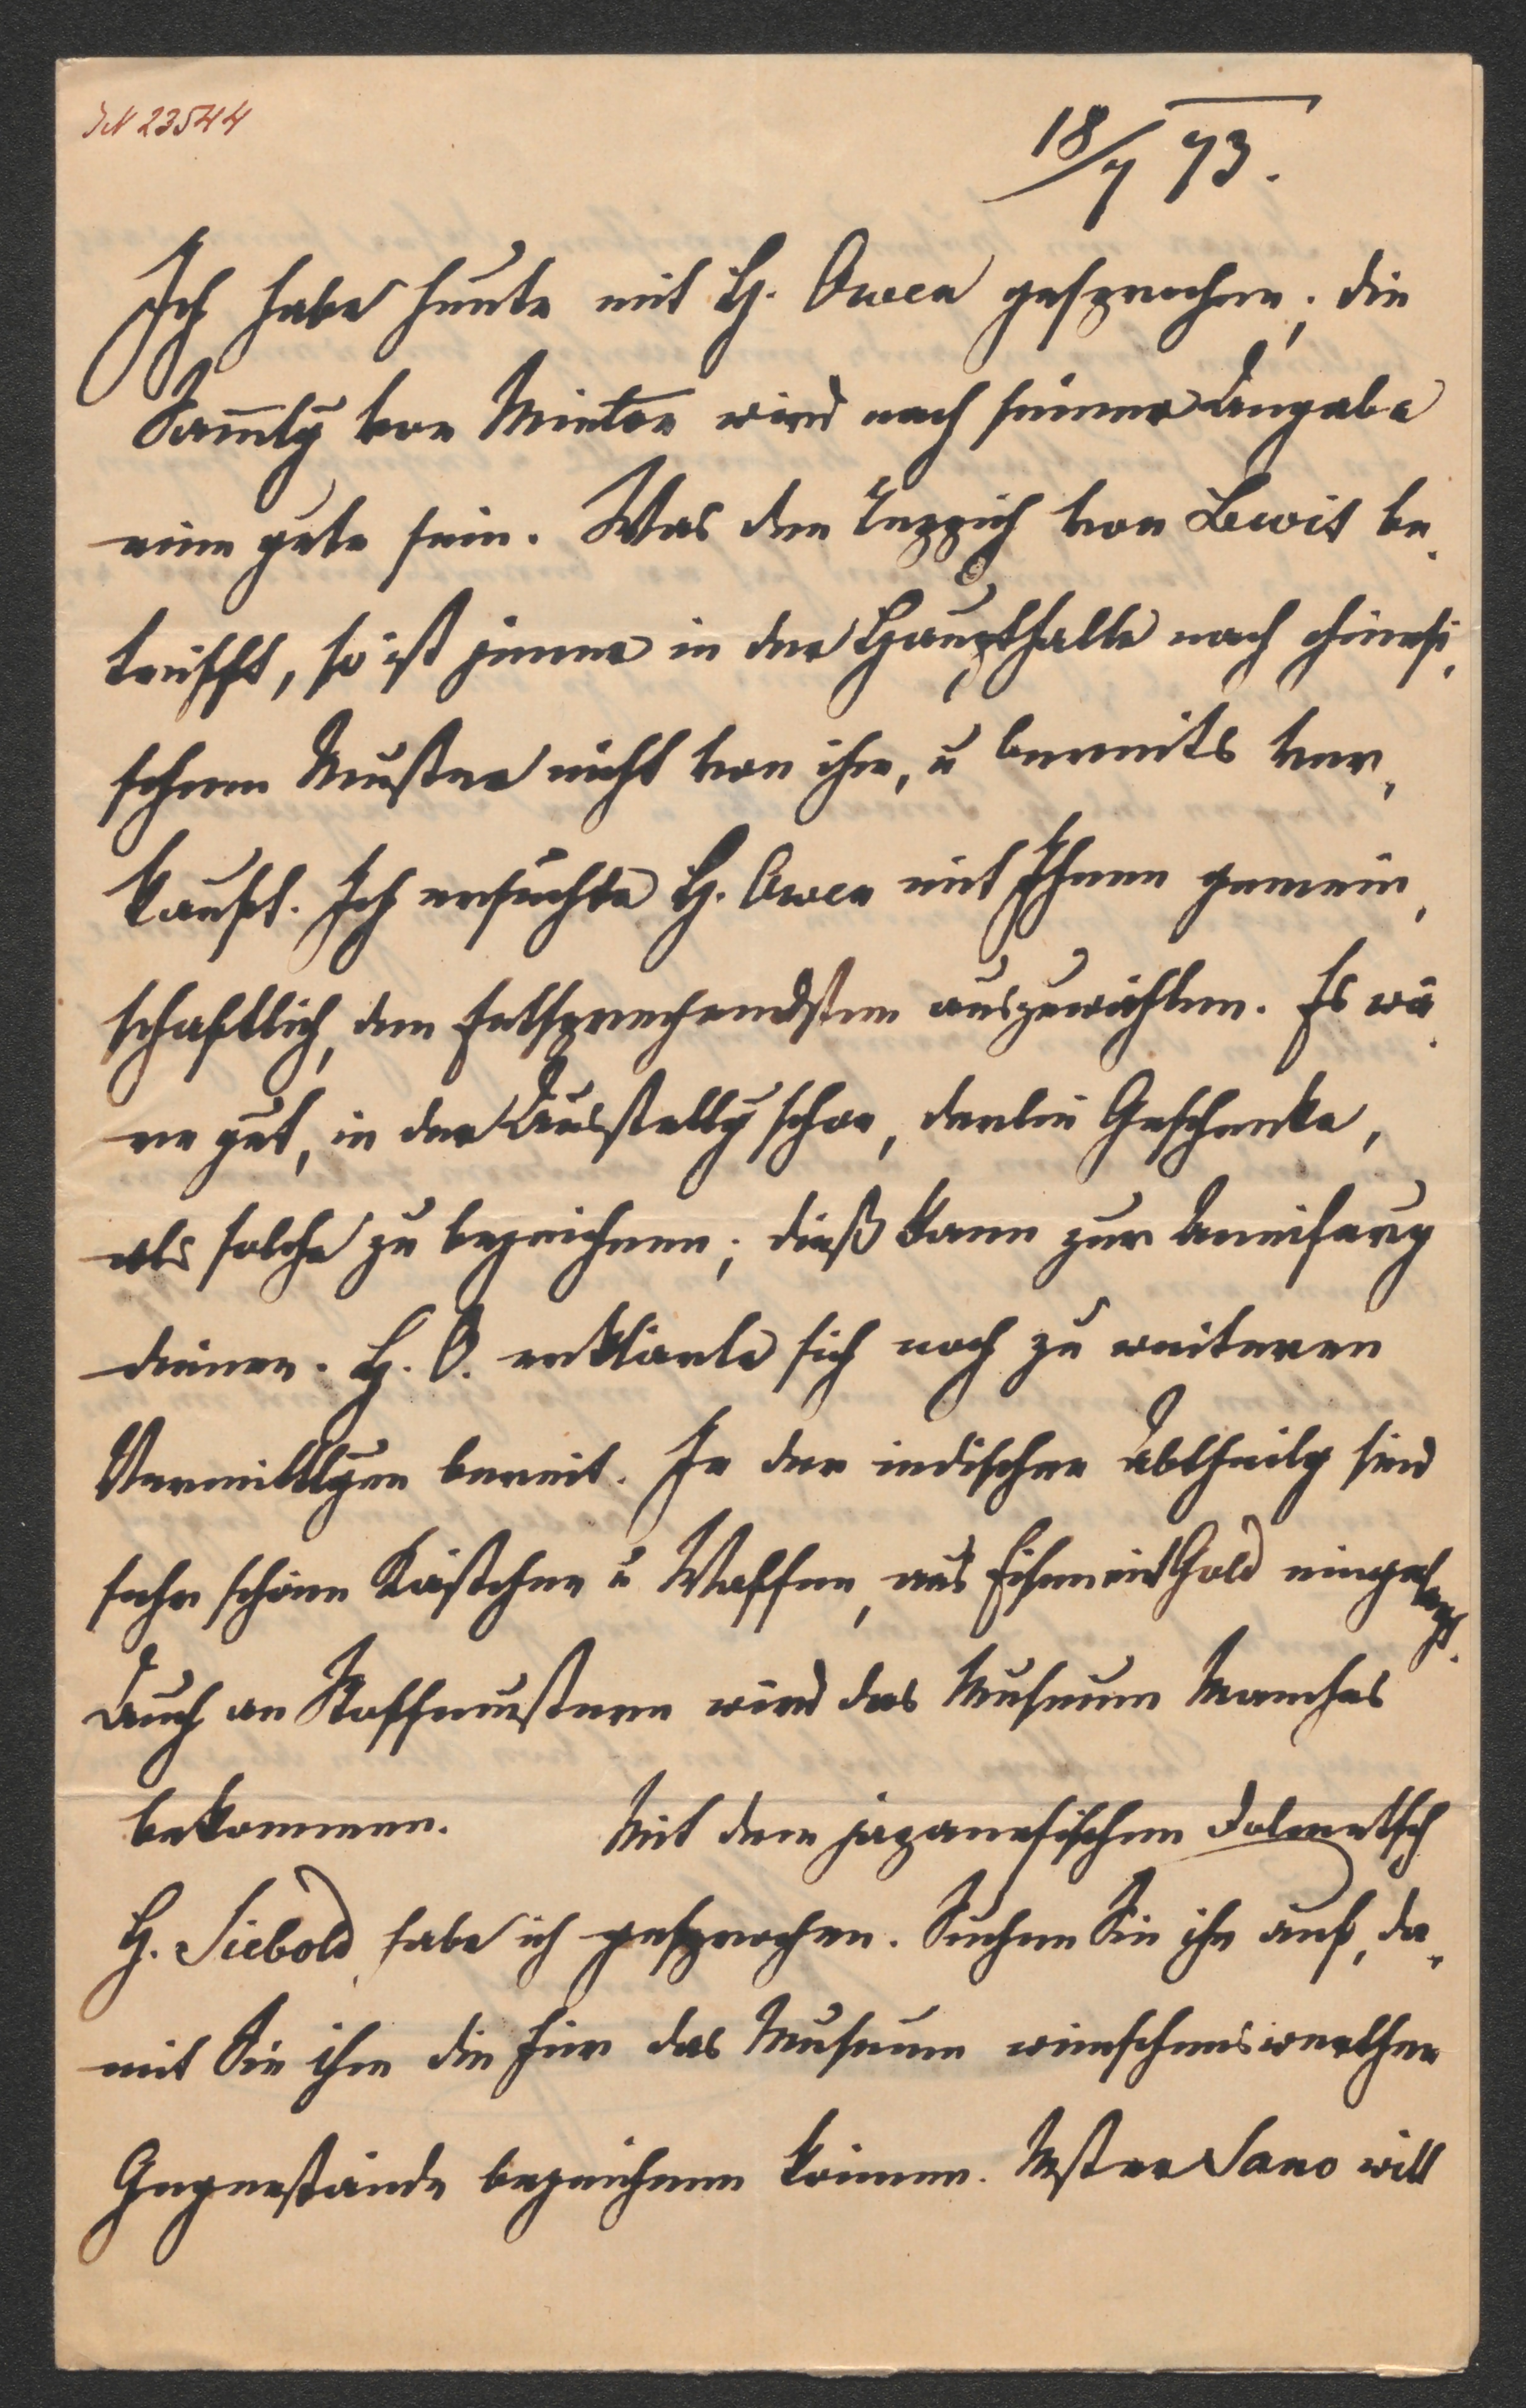 IN 23544
18/7 73.
Ich habe heute mit H. Owen gesprochen; die
Sam̅lg von Minton wird nach seiner Angabe
eine gute sein. Was den Teppich von Lewis be,
treufft, so ist jener in der Haupthalle nach chinesi,
schem Muster nicht von ihm, u bereits ver,
kauft. Ich ersuchte H. Owen mit Ihnen gemein,
schaftlich, den Entsprechendsten auszuwählen. Es wä,
re gut, in der Ausstellg schon, derlei Geschenke,
als solche zu bezeichnen; dieß kann zur Aneiferung
dienen. H. O. erklärte sich noch zu weiteren
Vermittlgen bereit. In der indischen Abtheilg sind
sehr schöne Kästchen u Waffen, aus Eisen mit Gold eingelegt.
Auch an Stoffmustern wird das Museum Manches
bekommen. Mit dem japanesischen Dolmetsch
H. Siebold habe ich gesprochen. Suchen Sie ihn auf, da,
mit Sie ihm die für das Museum wünschenswerthen
Gegenstände bezeichnen können. Sano will